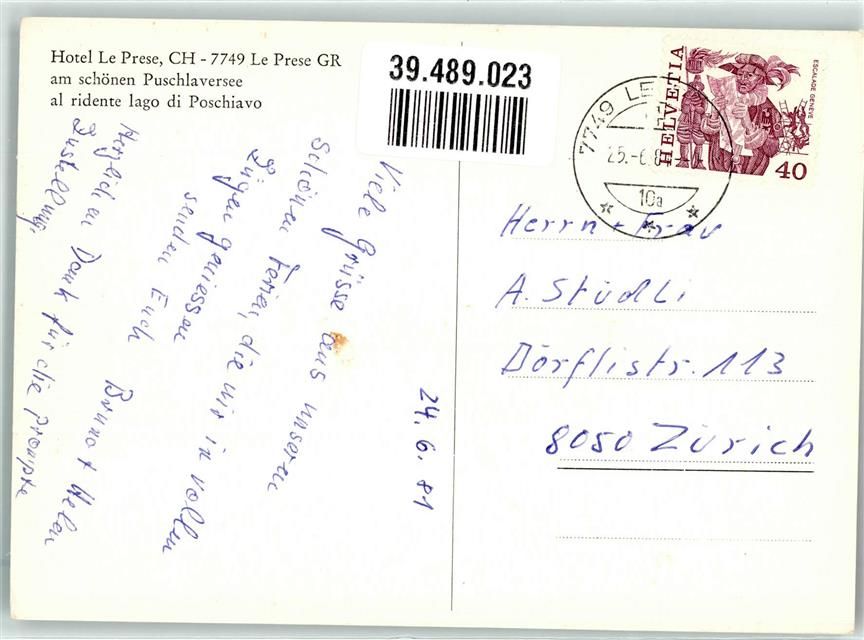 Hotel Le Prese, CH - 7749 Le Prese GR
am schönen Puschlaversee
al ridente lago di Poschiavo
39.489.023
7749 LE
25.-6.8
10a
HELVETIA
ESCALADE GENÈVE
40
24. 6. 81
Viele Grüsse aus unseren
schönen Ferien, die wir in vollen
Zügen geniessen
senden Euch
Bruno + Helen
Herzlichen Dank für die prompte
Zustellung.
Herrn + Frau
A. Stüdli
Dörflistr. 113
8050 Zürich